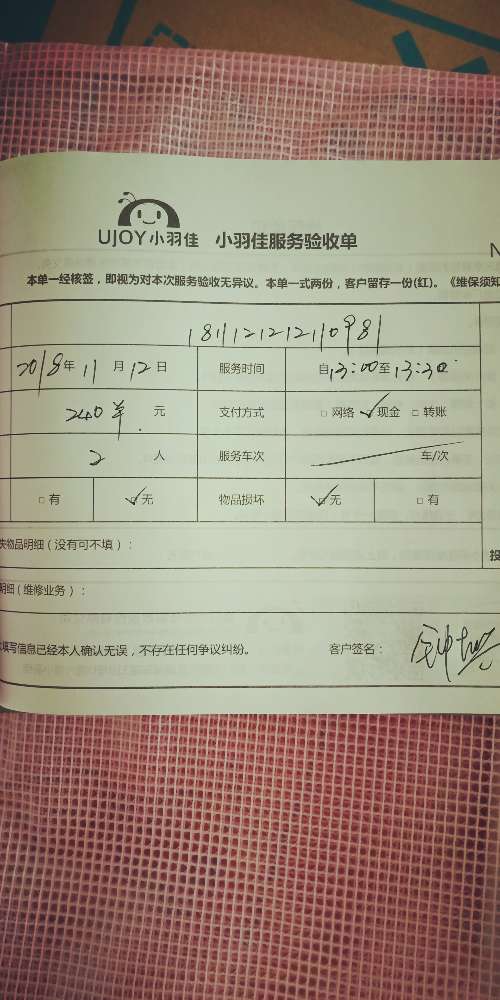 UJOY小羽佳 小羽佳服务验收单
N
本单一经核签，即视为对本次服务验收无异议。本单一式两份，客户留存一份(红)。《维保须知
2018年11月12日 服务时间 自13:00至13:30
240 元 支付方式 □ 网络 ✓ 现金 □ 转账
2 人 服务车次 车/次
□ 有 ✓ 无 物品损坏 ✓ 无 □ 有
失物品明细（没有可不填）：
投
明细（维修业务）：
填写信息已经本人确认无误，不存在任何争议纠纷。 客户签名：